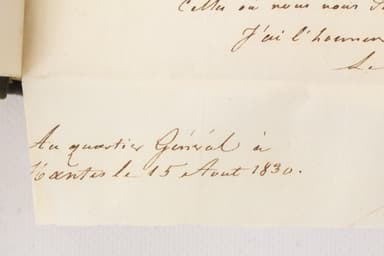 Celles où nous nous
J'ai l'honneur
Le
Au quartier Général à
Nantes le 15 Aout 1830.